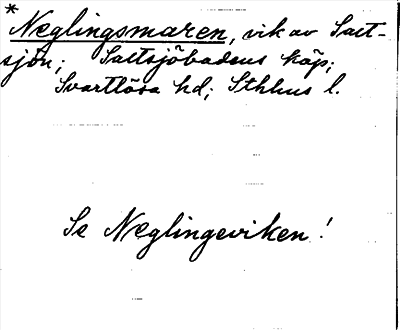 * Neglingsmaren, vik av Salt-
sjön; Saltsjöbadens köp;
Svartlösa hd; Sthlms l.
Se Neglingeviken!